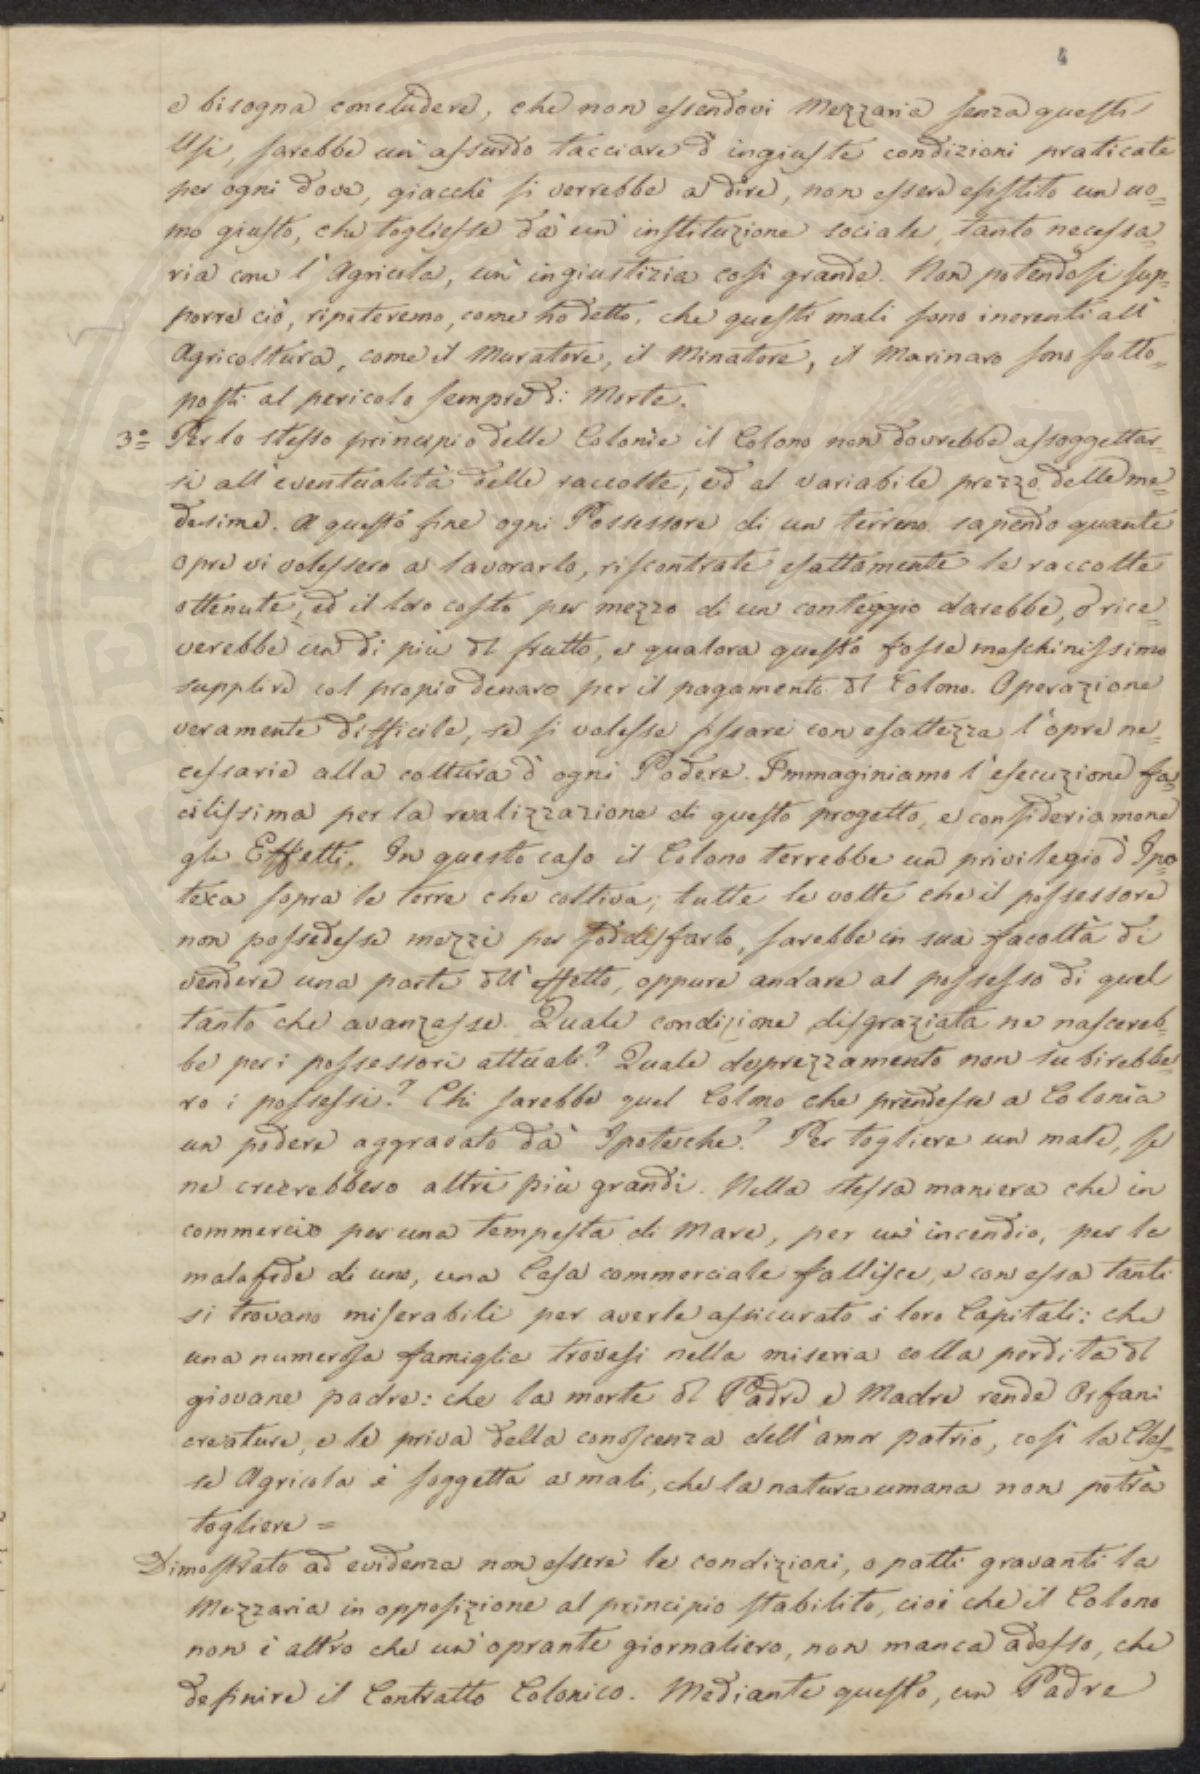 e bisogna concludere, che non essendovi Mezzaria senza questi
Usi, sarebbe un' assurdo tacciare d' ingiuste condizioni praticate
per ogni dove, giacchè si verrebbe a dire, non essere esistito un uo=
mo giusto, che togliesse da un' instituzione sociale, tanto necessa=
ria come l' Agricola, un' ingiustizia così grande. Non potendosi sup=
porre ciò, ripeteremo, come ho detto, che questi mali sono inerenti all'
Agricoltura, come il Muratore, il Minatore, il Marinaro sono sotto=
posti al pericolo sempre di Morte.
3º= Per lo stesso principio delle Colonìe il Colono non dovrebbe assoggettar=
si all' eventualità delle raccolte, ed al variabile prezzo delle me=
desime. A questo fine ogni Possessore di un terreno sapendo quante
opre vi volessero a lavorarlo, riscontrate esattamente le raccolte
ottenute, ed il loro costo per mezzo di un conteggio darebbe, o rice=
verebbe un di più del frutto, e qualora questo fosse meschinissimo
supplire col propio denaro per il pagamento del Colono. Operazione
veramente difficile, se si volesse fissare con esattezza l' opre ne=
cessarie alla coltura d' ogni Podere. Immaginiamo l' esecuzione fa=
cilissima per la realizzazione di questo progetto, e consideriamone
gli Effetti. In questo caso il Colono terrebbe un privilegio d' Ipo=
teca sopra le terre che coltiva; tutte le volte che il possessore
non possedesse mezzi per soddisfarlo, sarebbe in sua facoltà di
vendere una parte dell' effetto, oppure andare al possesso di quel
tanto che avanzasse. Quale condizione disgraziata ne nascereb=
be per i possessori attuali? Quale deprezzamento non subirebbe=
ro i possessi? Chi sarebbe quel Colono che prendesse a Colonìa
un podere aggravato da Ipoteche? Per togliere un male, se
ne creerebbero altri più grandi. Nella stessa maniera che in
commercio per una tempesta di Mare, per un' incendio, per la
malafede di uno, una Casa commerciale fallisce, e con essa tanti
si trovano miserabili per averle assicurato i loro Capitali: che
una numerosa famiglia trovasi nella miseria colla perdita del
giovane padre: che la morte del Padre e Madre rende Orfani
creature, e le priva della conoscenza dell' amor patrio, così la Clas=
se Agricola è soggetta a mali, che la natura umana non potrà
togliere =
Dimostrato ad evidenza non essere le condizioni, o patti gravanti la
Mezzaria in opposizione al principio stabilito, cioè che il Colono
non è altro che un' oprante giornaliero, non manca adesso, che
definire il Contratto Colonico. Mediante questo, un Padre